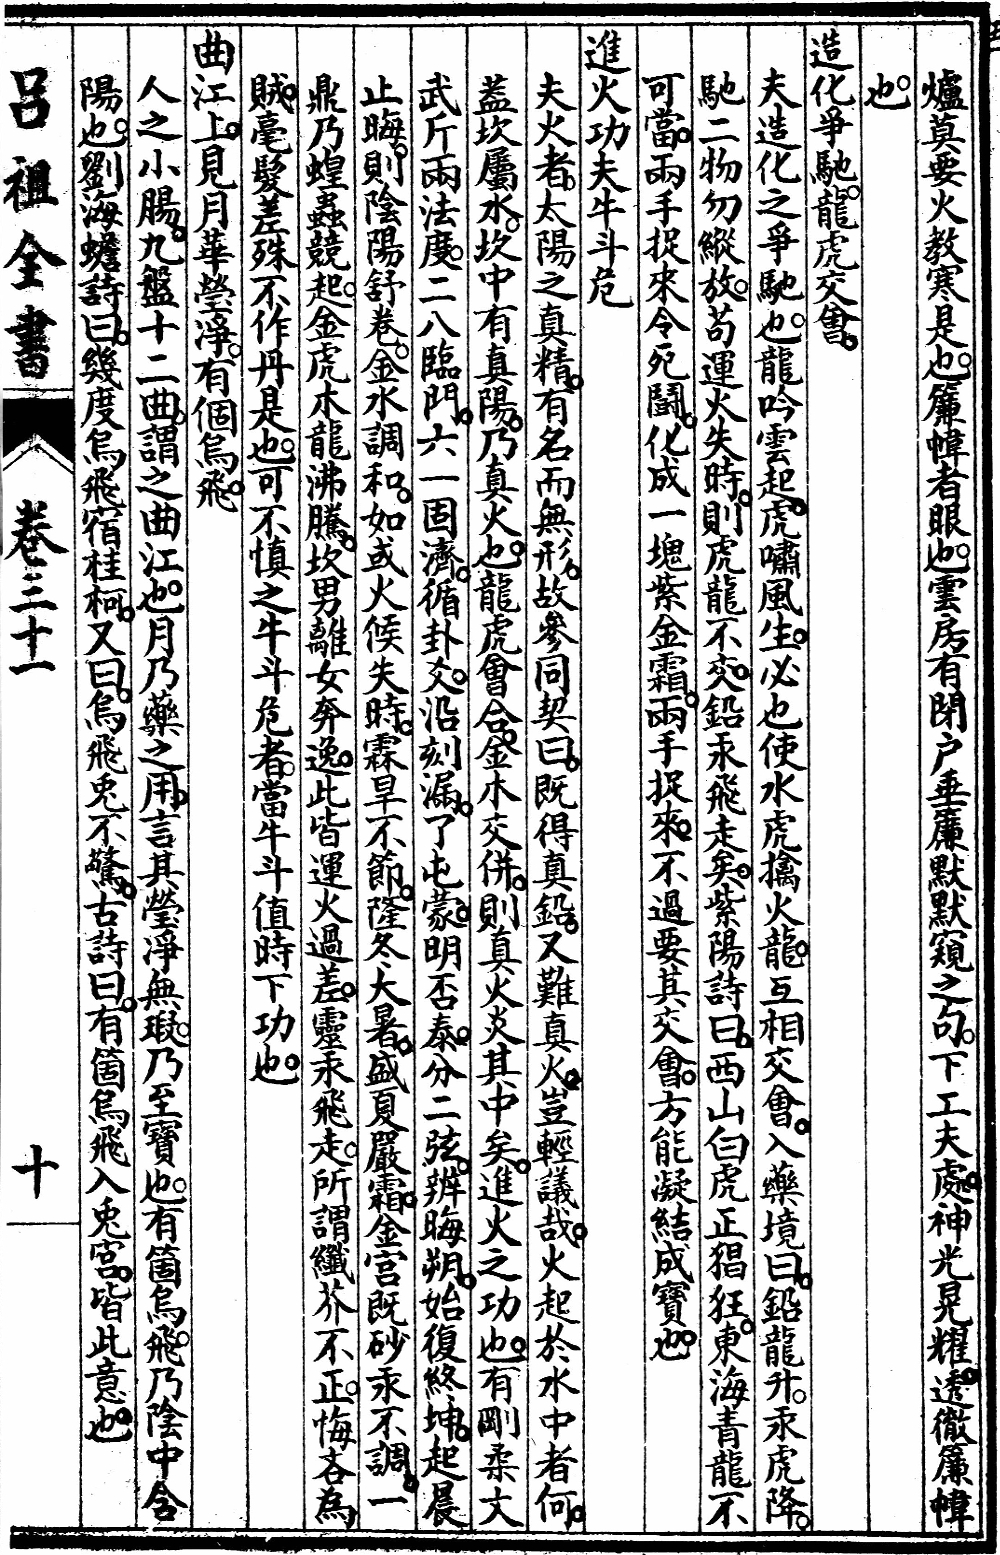 爐莫要火教寒是也。簾幃者眼也。雲房有閉户垂簾默默窺之句。下工夫處。神光晃耀。透徹簾幃
也。
造化爭馳。龍虎交會。
夫造化之爭馳也。龍吟雲起。虎嘯風生。必也使水虎擒火龍。互相交會。入藥境曰。鉛龍升。汞虎降。
馳二物勿縱放。苟運火失時。則虎龍不交。鉛汞飛走矣。紫陽詩曰。西山白虎正猖狂。東海青龍不
可當。兩手捉來令死鬪。化成一塊紫金霜。兩手捉來。不過要其交會。方能凝結成寶也。
進火功夫牛斗危
夫火者。太陽之真精。有名而無形。故參同契曰。既得真鉛。又難真火。豈輕議哉。火起於水中者何。
蓋坎屬水。坎中有真陽。乃真火也。龍虎會合。金木交併。則真火炎其中矣。進火之功也。有剛柔文
武斤兩法度。二八臨門。六一固濟。循卦爻。沿刻漏。了屯蒙。明否泰。分二弦。辨晦朔。始復終坤。起晨
止晦。則陰陽舒卷。金水調和。如或火候失時。霖旱不節。隆冬大暑。盛夏嚴霜。金宮既砂汞不調。一
鼎乃蝗蟲競起。金虎木龍沸騰。坎男離女奔逸。此皆運火過差。靈汞飛走。所謂纖芥不正。悔吝為
賊。毫髮差殊不作丹是也。可不慎之。牛斗危者。當牛斗值時下功也。
曲江上。見月華瑩淨。有個烏飛。
人之小腸。九盤十二曲。謂之曲江也。月乃藥之用。言其瑩淨無瑕。乃至寶也。有箇烏飛。乃陰中含
陽也。劉海蟾詩曰。幾度烏飛宿桂柯。又曰。烏飛兎不驚。古詩曰。有箇烏飛入兎宮。皆此意也。
呂祖全書
卷三十一
十